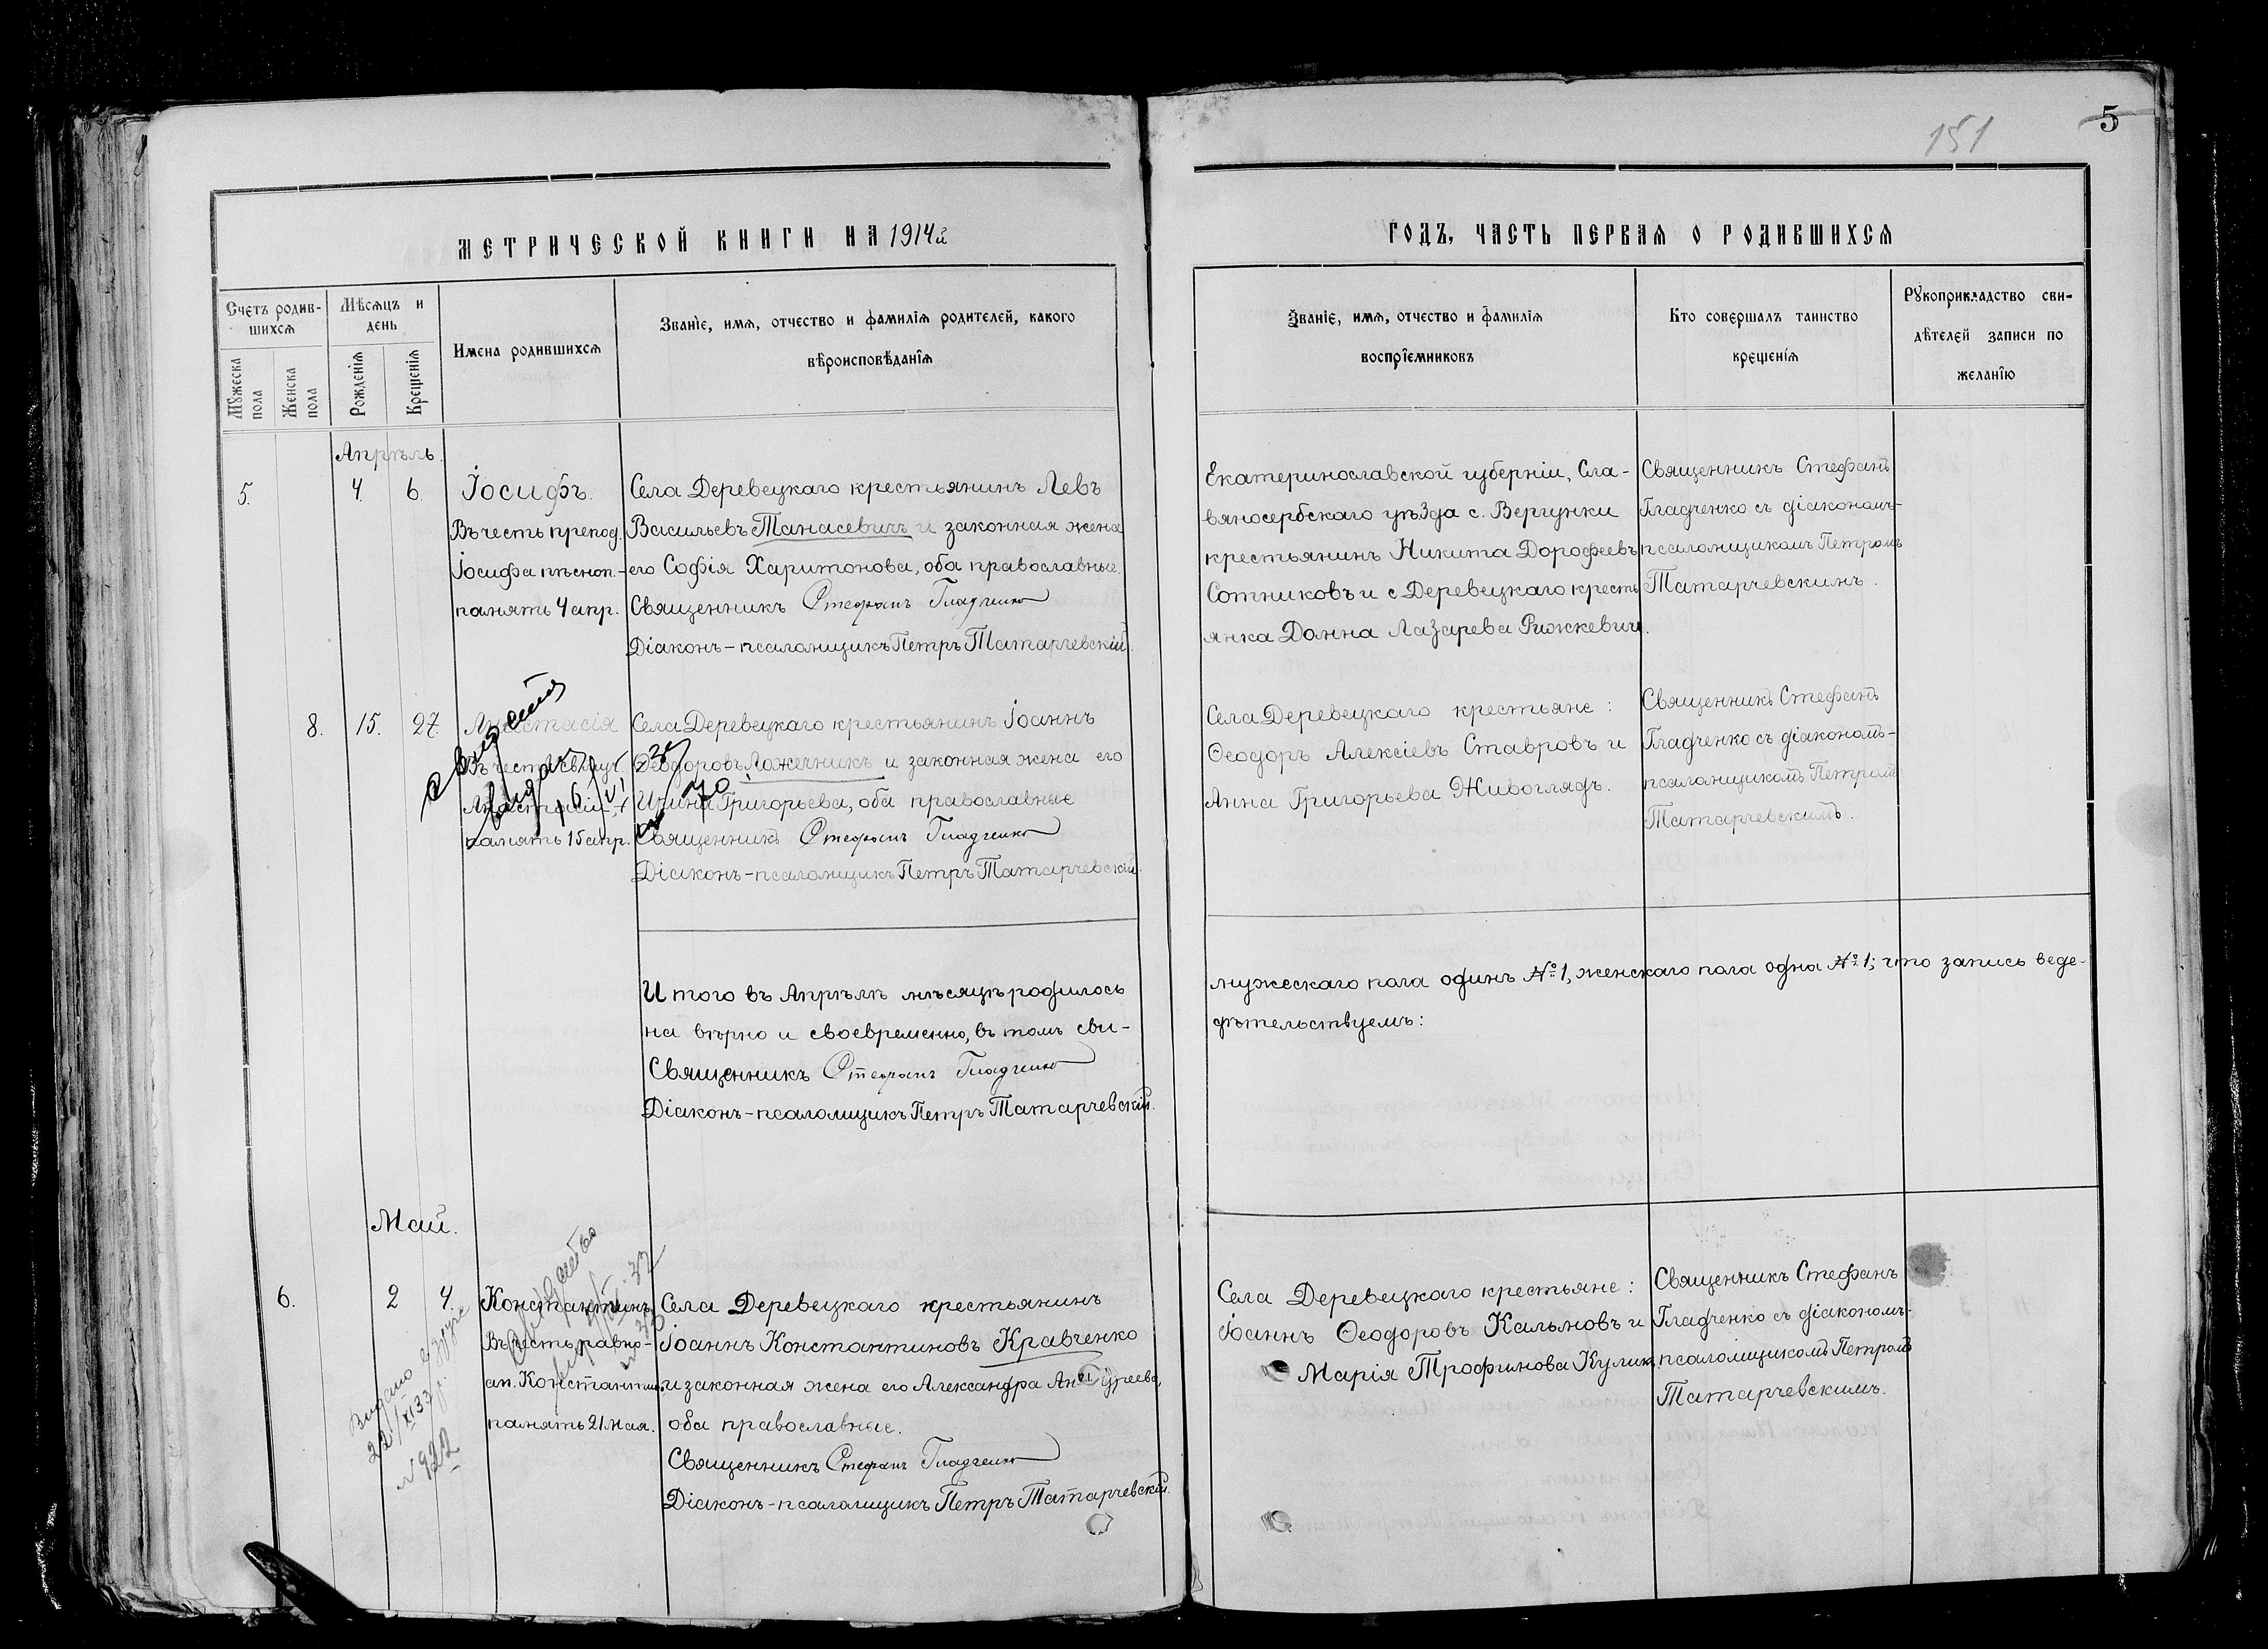 151
5
МЕТРИЧЕСКОЙ КНИГИ НА 1914й
ГОДЪ, ЧАСТЬ ПЕРВАЯ О РОДИВШИХСЯ
Счетъ родив-
шихся
Мужеска
пола
Женска
пола
Мѣсяцъ и
день
Рожденія
Крещенія
Имена родившихся
Званіе, имя, отчество и фамилія родителей, какого
вѣроисповѣданія
Званіе, имя, отчество и фамилія
воспріемниковъ
Кто совершалъ таинство
крещенія
Рукоприкладство сви-
дѣтелей записи по
желанію
Апрѣль.
5.
4. 6.
Іосифъ.
Въ честь препод.
Іосифа пѣсноп.-
память 4 апр.
Села Деревецкаго крестьянинъ Левъ
Васильевъ Танасевичъ и законная жена
его Софія Харитонова, оба православные.
Священникъ Стефанъ Гладченко
Діаконъ-псаломщикъ Петръ Татарчевскій.
Екатеринославской губерніи, Сла-
вяносербскаго уѣзда с. Вергунки
крестьянинъ Никита Дорофеевъ
Сотниковъ и с Деревецкаго кресть
янка Домна Лазарева Рижкевич.
Священникъ Стефанъ
Гладченко съ діакономъ-
псаломщикомъ Петромъ
Татарчевскимъ.
8. 15. 27.
Анастасія
Въ честь свмуч.
Анастасіи,
память 15 апр.
Села Деревецкаго крестьянинъ Іоаннъ
Ѳеодоровъ Ложечникъ и законная жена его
Ирина Григорьева, оба православные
Священникъ Стефанъ Гладченко
Діаконъ-псаломщикъ Петръ Татарчевскій.
Села Деревецкаго крестьяне:
Ѳеодоръ Алексіевъ Ставровъ и
Анна Григорьева Живоглядъ.
Священникъ Стефанъ
Гладченко съ діакономъ-
псаломщикомъ Петромъ
Татарчевскимъ.
Итого въ Апрѣлѣ мѣсяцѣ родилось
мужескаго пола одинъ №1, женскаго пола одна №1; что запись веде-
на вѣрно и своевременно, въ томъ сви-
дѣтельствуемъ:
Священникъ Стефанъ Гладченко
Діаконъ-псаломщикъ Петръ Татарчевскій.
Май.
6. 2 4.
Константинъ
Въ честь равно-
ап. Константина,
память 21 мая.
Видано
22/XI 33 р.
№ 922
Села Деревецкаго крестьянинъ
Іоаннъ Константиновъ Кравченко
и законная жена его Александра Андреева,
оба православные.
Священникъ Стефанъ Гладченко
Діаконъ-псаломщикъ Петръ Татарчевскій.
Села Деревецкаго крестьяне:
Іоаннъ Ѳеодоровъ Кальновъ и
Марія Трофимова Кулик.
Священникъ Стефанъ
Гладченко съ діакономъ-
псаломщикомъ Петромъ
Татарчевскимъ.